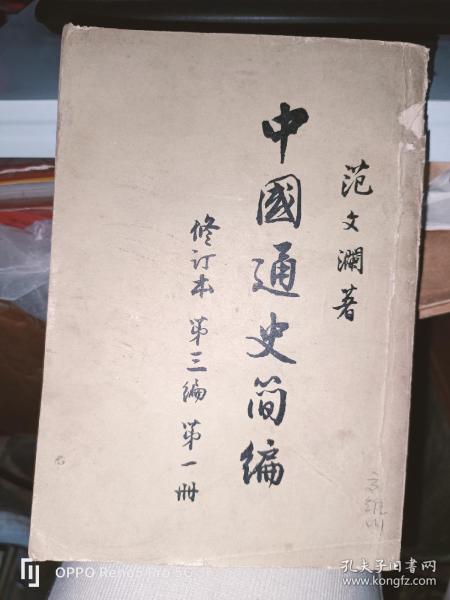 范文澜著
中國通史简编
修订本 第三编 第一册
OPPO Reno
5G
孔夫子旧书网
www.kongfz.com